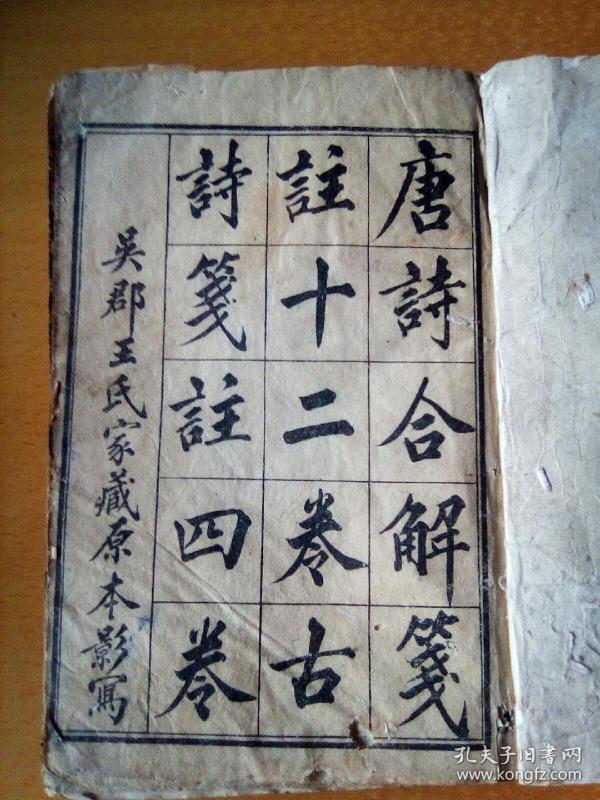 唐詩合解箋
註十二卷古
詩箋註四卷
吳郡王氏家藏原本影寫
孔夫子旧書网
www.kongfz.com